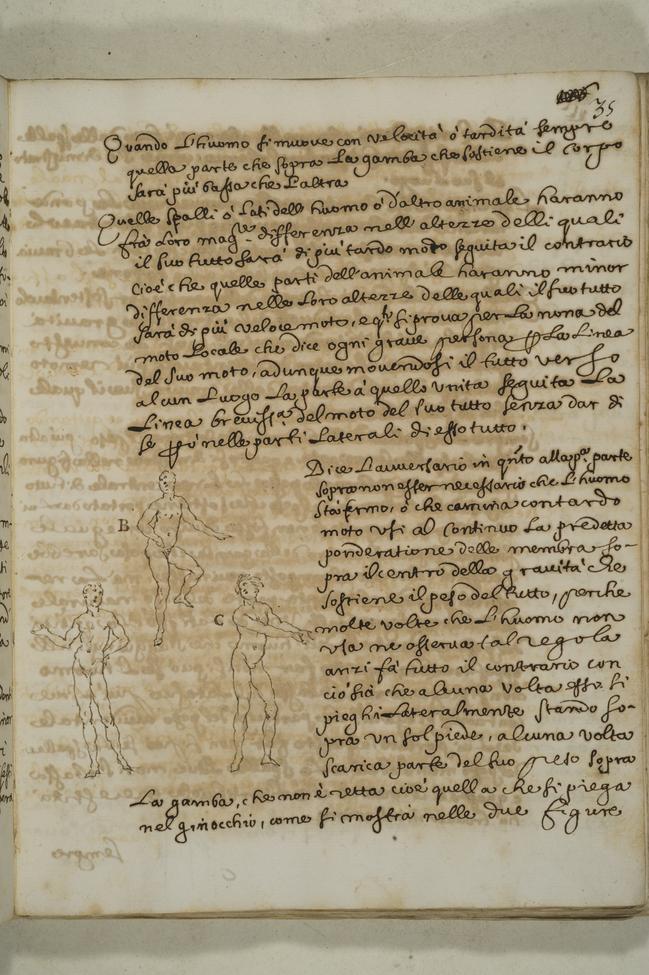 35
Quando l'huomo si muove con velocità ò tardità sempre
quella parte che sopra la gamba che sostiene il corpo
sarà più bassa che l'altra
Quelle spalli ò lati dell'huomo ò d'altro animale haranno
frà loro magre. differenza nell'altezze delli quali
il suo tutto sarà di più tardo moto seguita il contrario
cioè che quelle parti dell'animale haranno minor
differenza nelle loro altezze delle quali il suo tutto
sarà di più veloce moto, e qto. si prova per la nona del
moto locale che dice ogni grave pesa per la linea
del suo moto, adunque movendosi il tutto verso
alcun luogo la parte à quello unita seguita la
linea brevissa. del moto del suo tutto senza dar di
se peso nelle parti laterali di esso tutto.
Dice l'avversario in qnto alla pa. parte
sopra non esser necessario che l'huomo
stà fermo, ò che camina con tardo
moto usi al continuo la predetta
ponderatione delle membra so-
pra il centro della gravità che
sostiene il peso del tutto, perche
molte volte che l'huomo non
usa ne osserva tal regola
anzi fà tutto il contrario con
ciò sia che alcuna volta esso si
pieghi lateralmente stando so-
pra un sol piede, alcuna volta
scarica parte del suo peso sopra
la gamba, che non è retta cioè quella che si piega
nel ginocchio, come si mostra nelle due figure
B
C